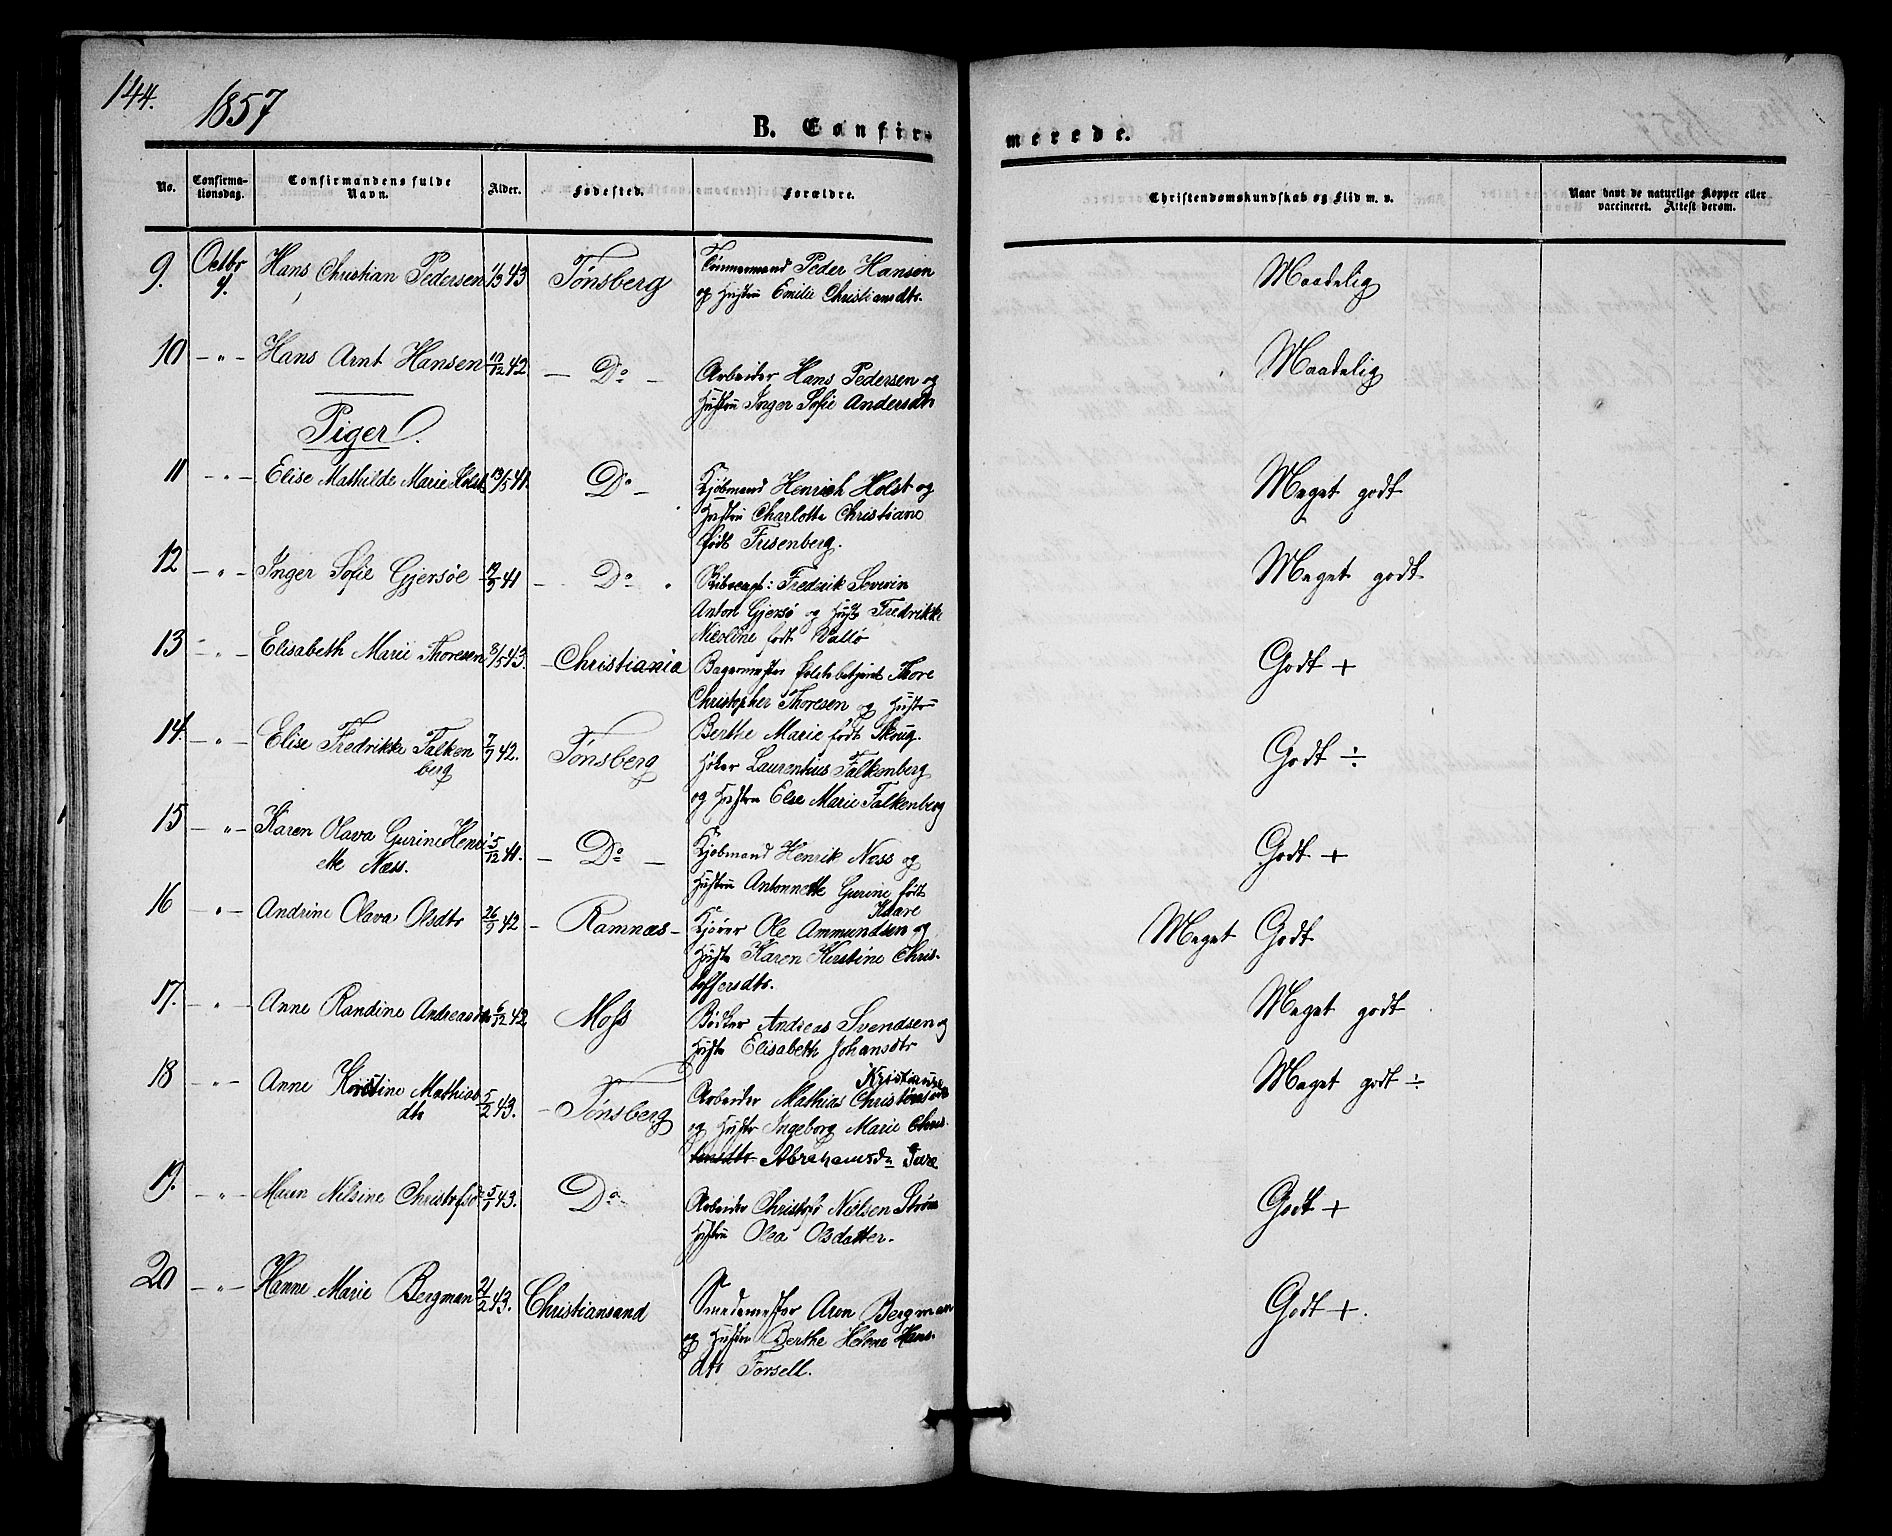 144.
1857
B. Confirmerede.
No. Confirmationsdag. Confirmandens fulde Navn. Alder. Fødested. Forældre. Christendomskundskab og Flid m. v. Naar havt de naturlige Kopper eller vaccineret. Attest derom.
9. Octbr 4. Hans Christian Pedersen 1/3 43 Tønsberg Tømmermand Peder Hansen Maadelig
og Hustru Emilie Christiansdtr.
10 — " — Hans Arnt Hansen 12 42 — Do — Arbeider Hans Pedersen og Maadelig
Hustru Inger Sofie Andersdtr
Piger.
11 — " — Elise Mathilde Marie Holst 13/5 41. Do — Kjøbmand Henrich Holst og Meget godt
Hustru Charlotte Christiane
født Frisenberg.
12 — " — Inger Sofie Gjersøe 9 41 — Do Fredrik Severin Meget godt
Anton Gjersø og Hustr Fredrikke
Nicoline født Vallø
13 — " — Elisabeth Marie Thoresen 8/5 43. — Christiania Bagermester Thore Godt +
Christopher Thoresen og Hustru
Berthe Marie født Skrug.
14. — " — Elise Fredrikke Falken 7/9 42. Tønsberg Høker Laurentius Falkenberg Godt ÷
berg
og Hustru Else Marie Falkenberg
15 — " — Karen Olava Gurine Henri 5/12 41. — Do — Kjøbmand Henrik Næss og Godt +
ette Næss.
Hustru Antonnette Gurine født
Kaare
16 — " — Andrine Olava Olsdtr 26/9 42 — Ramnæs — Kjører Ole Ammundsen og Meget Godt
Hustr Karen Kirstine Chris-
toffersdtr.
17. — " — Anne Randine Andreasdtr 6/12 42 Moss Bødker Andreas Svendsen og Meget godt
Hustr Elisabeth Johansdtr
18 — " — Anne Kristine Mathias 5/2 43. — Tønsberg Arbeider Mathias Meget godt ÷
dtr
Kristiansen
og Hustr Ingeborg Marie Chris-
tensdtr Abrahamsdr
19. — " — Maren Nilsine 5/1 43. Do Arbeider Nielsen Strøm Godt +
Hustru Olea Olsdatter.
20 — " — Hanne Marie Bergman 21/2 43. Christiansand Smedemester Aron Bergman Godt +.
og Hustru Berthe Helene Hans-
dtr Forsell.